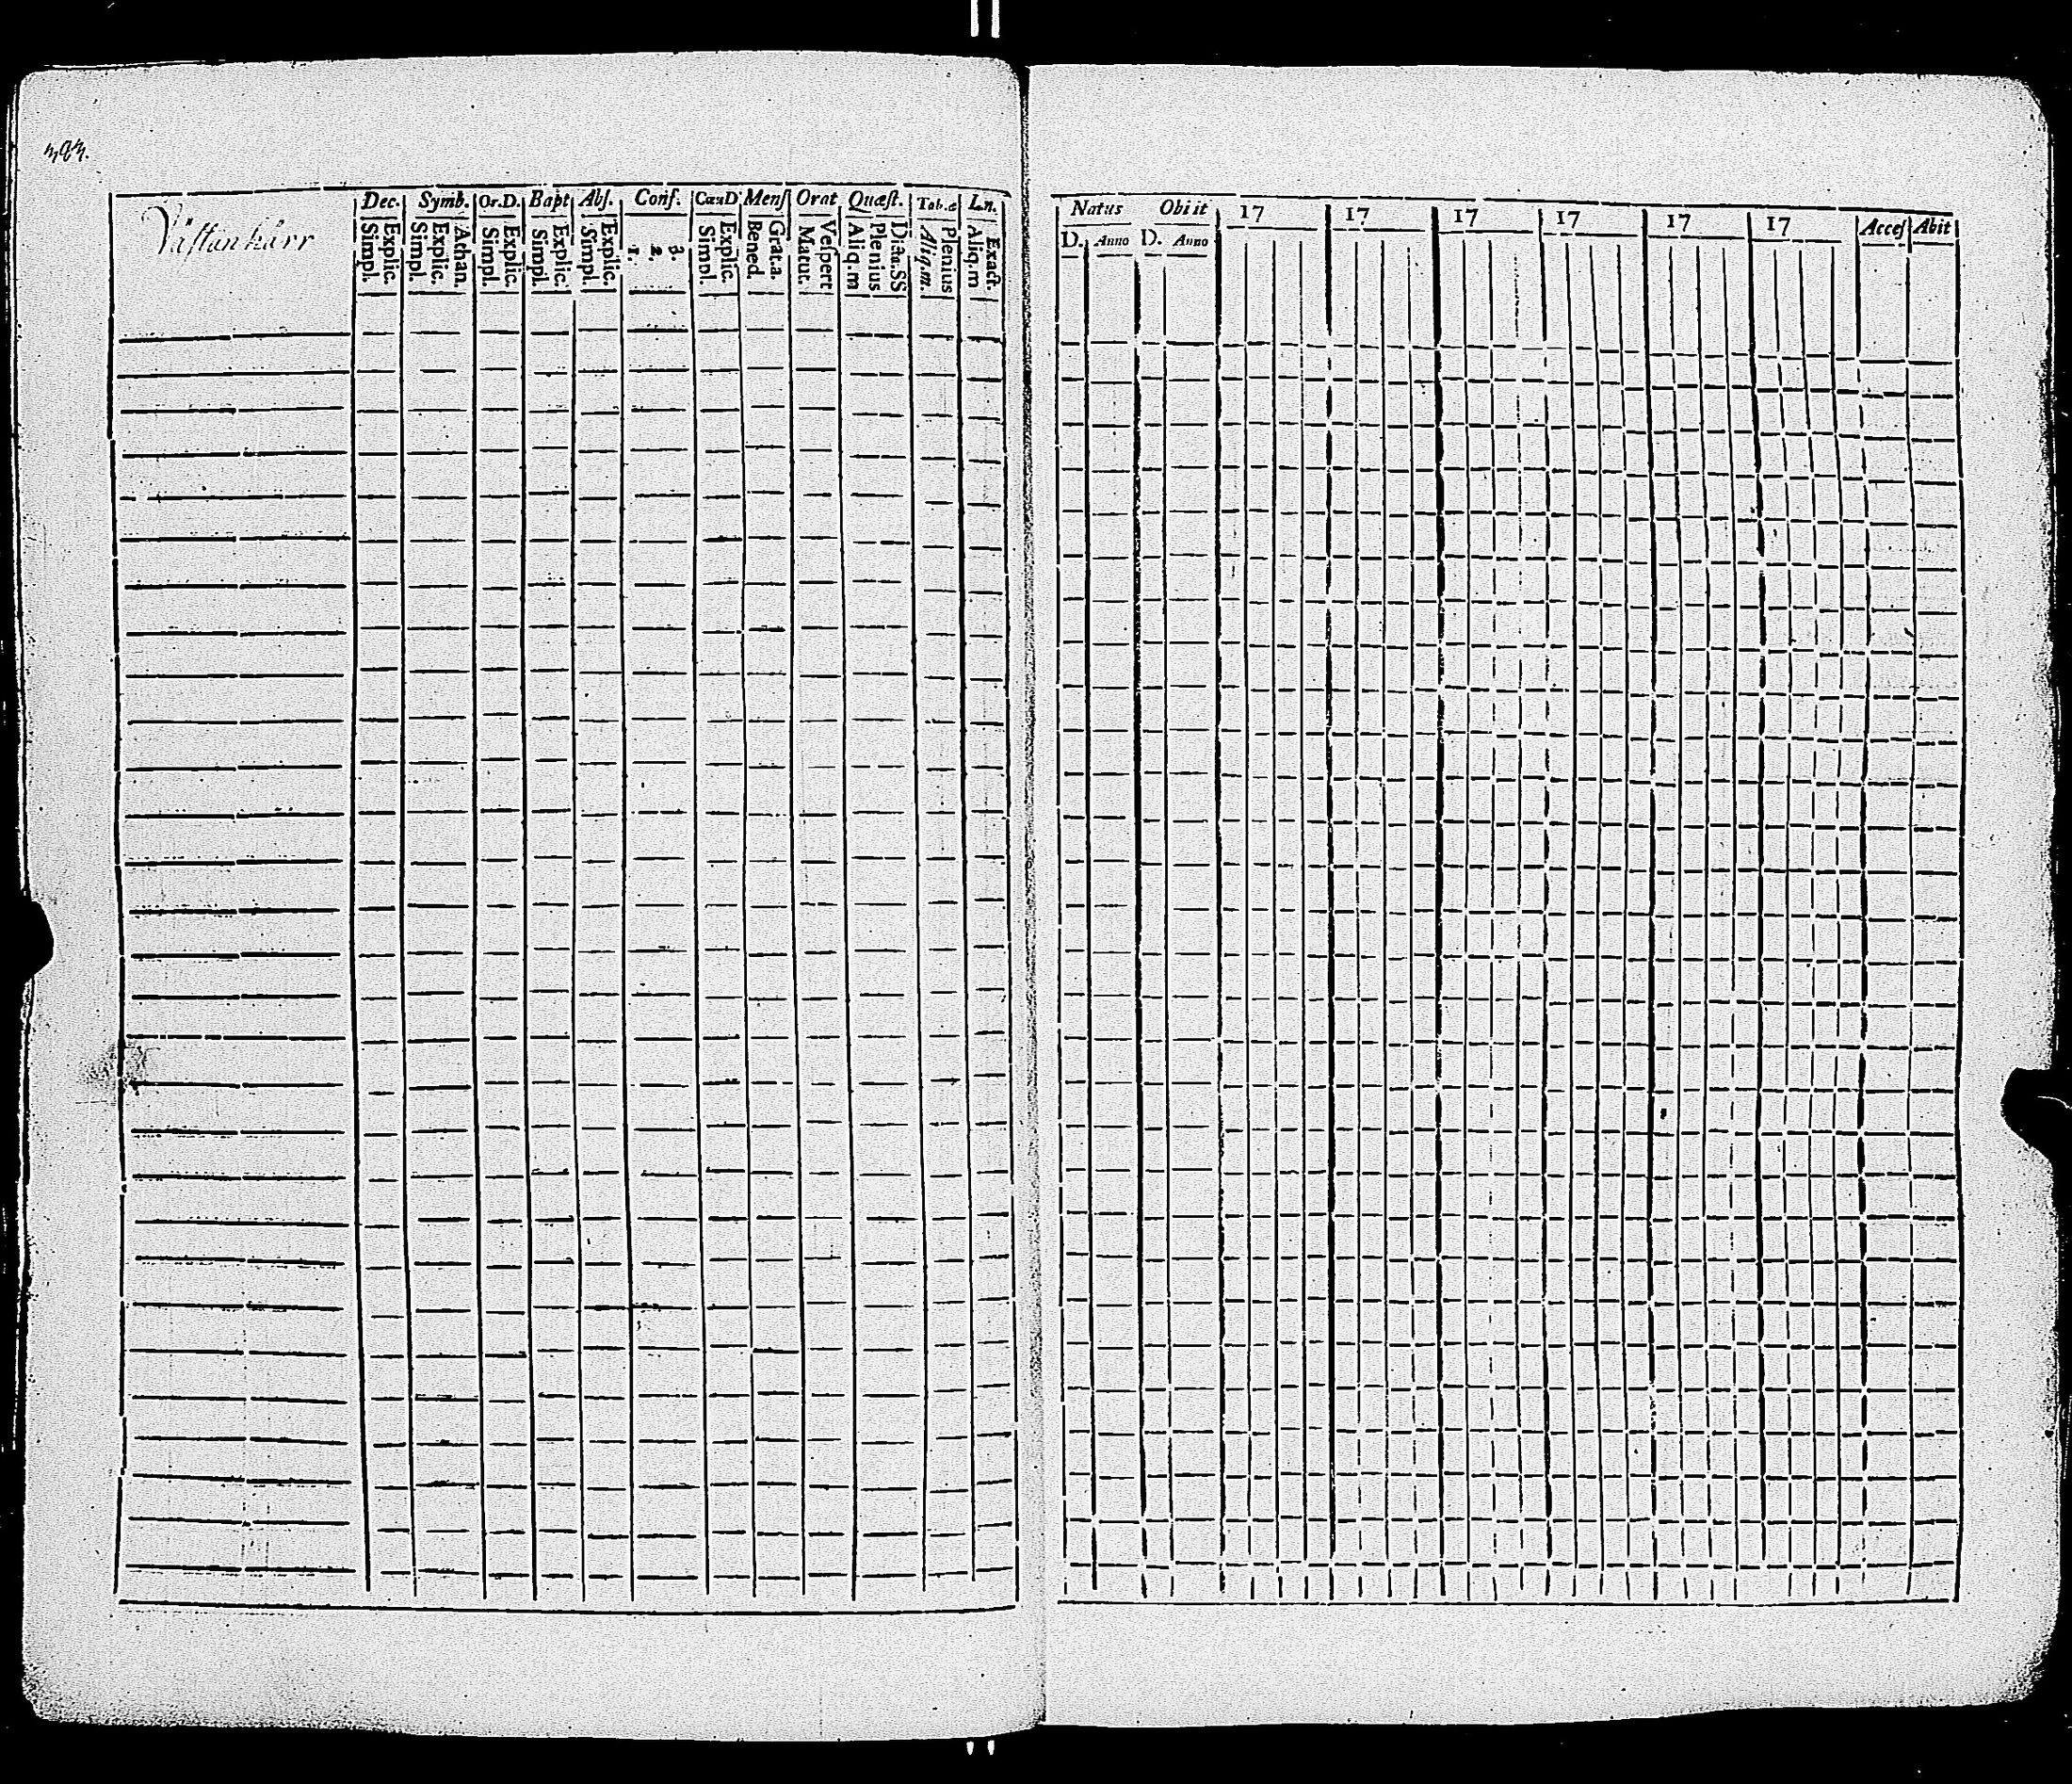 Västankärr
Dec. Symb. Or.D. Bapt Abſ. Conf. CœnD Menſ Orat Quæſt. Tab.æ Ln.
Simpl. Explic. Simpl. Explic. Athan. Simpl. Explic. Simpl. Explic. Simpl. Explic. 1. 2. 3. Simpl. Explic. Bened. Grat.a. Matut. Veſpert Aliq.m Plenius Aliq.m. Plenius Aliq.m Exact.
Natus Obiit 17 17 17 17 17 17 Acceſ Abit
D. Anno D. Anno